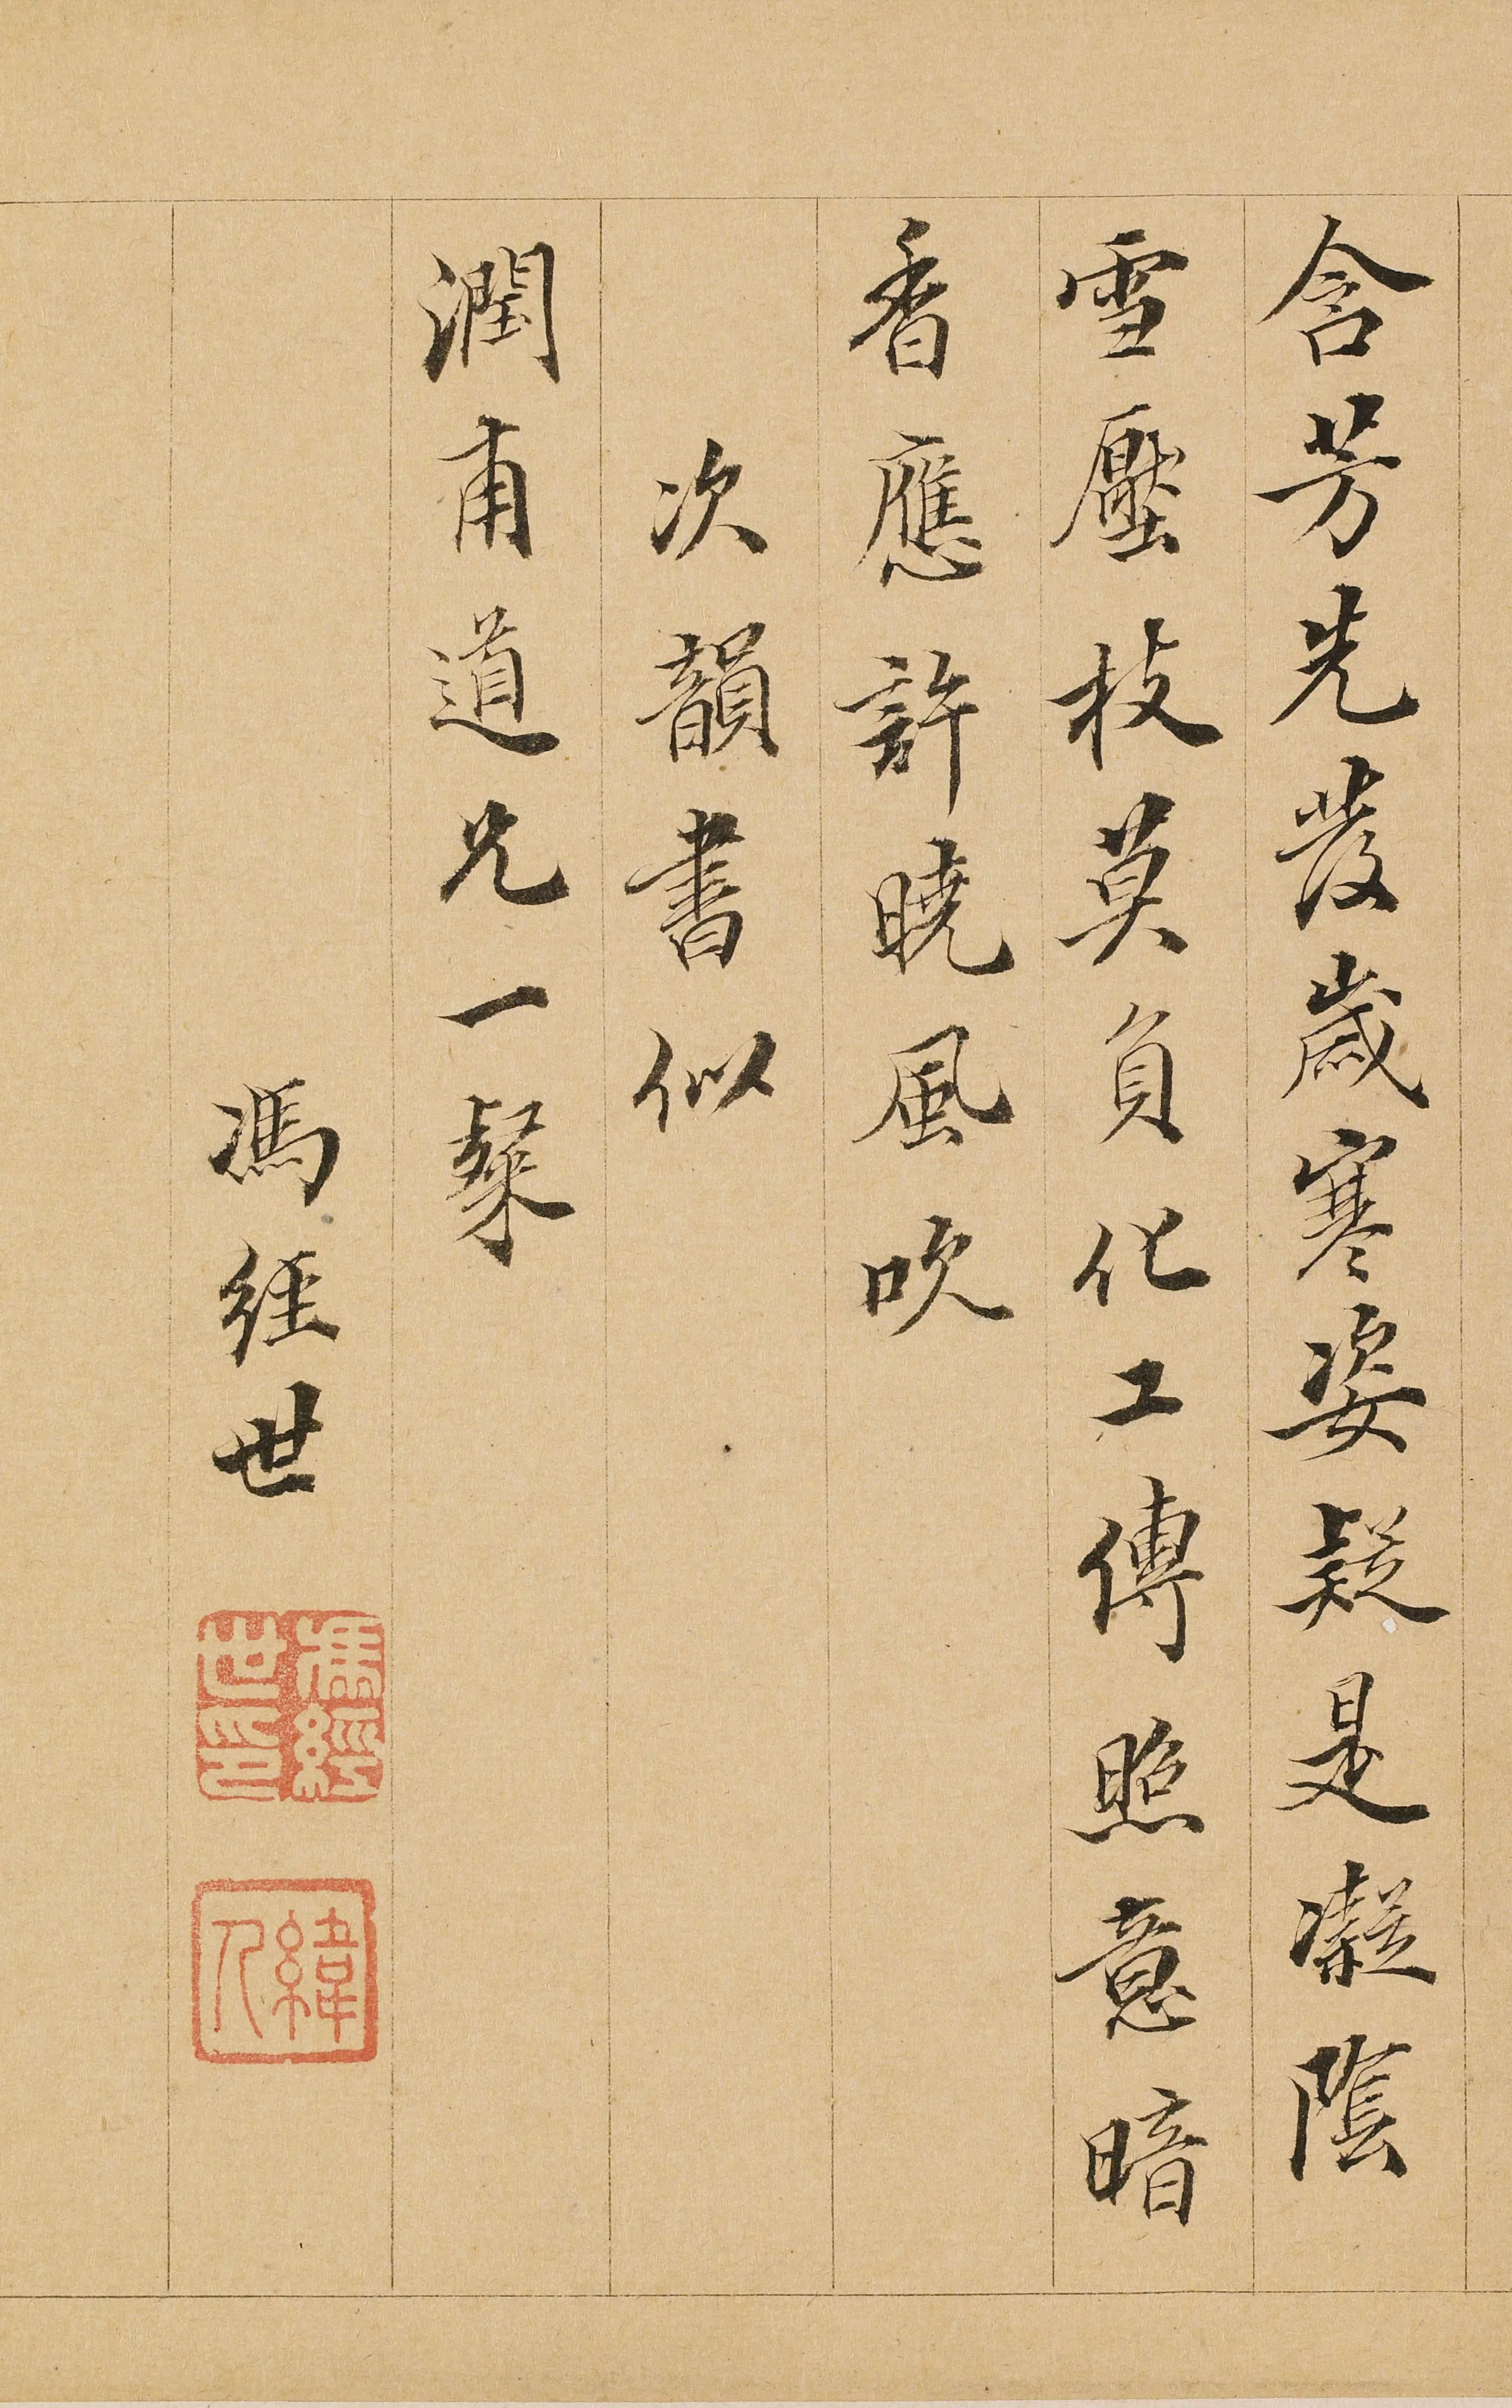 含芳先發歲寒姿疑是凝陰
雪壓枝莫負化工傳照意暗
香應許曉風吹
次韻書似
潤甫道兄一粲
馮經世
馮經世印
緯人